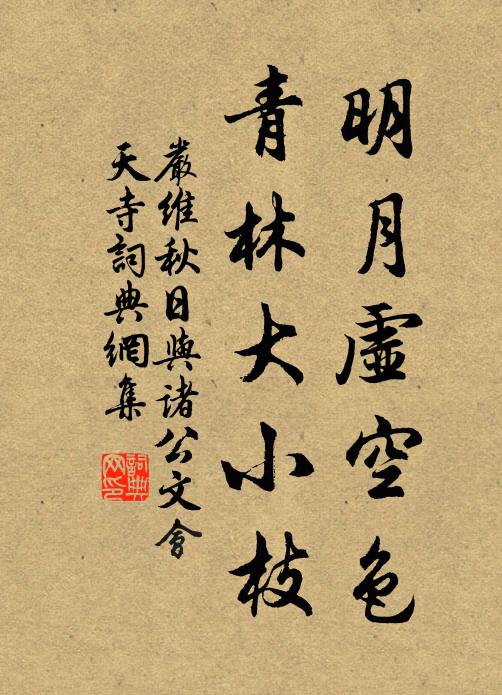 明月虛空色
青林大小枝
嚴維秋日與諸公文會
天寺詞典網集
詞典
网印